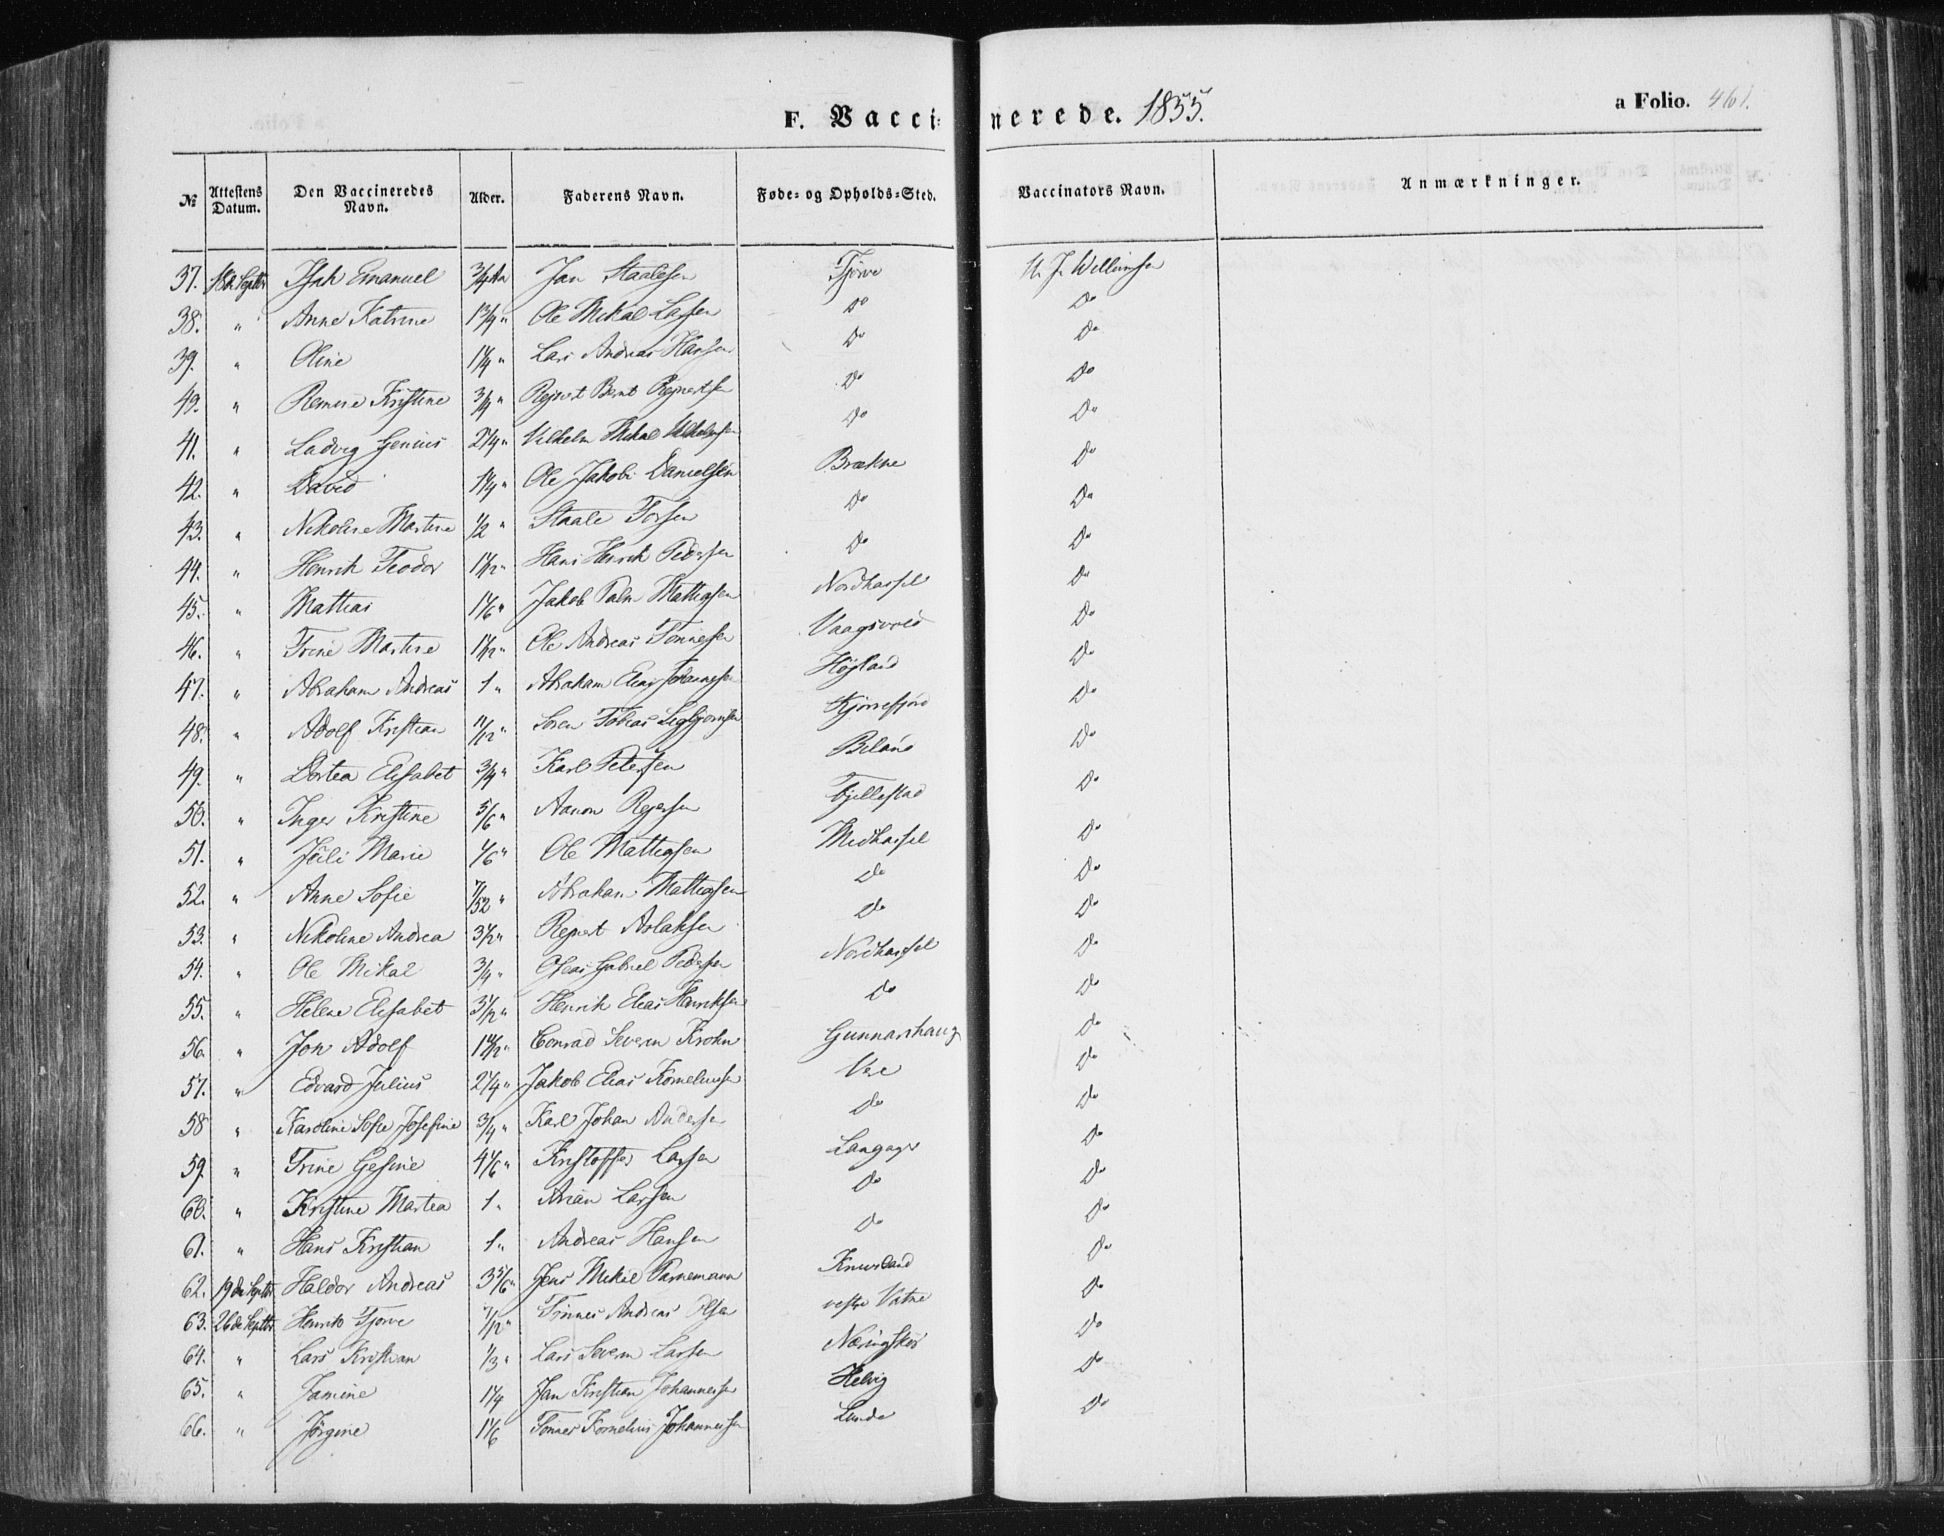 F. Vaccinerede. 1855.
a Folio. 461.
№ Attestens Datum. Den Vaccineredes Navn. Alder. Faderens Navn. Føde- og Opholds-Sted. Vaccinators Navn. Anmærkninger.
37. 18de Septbr Isak Emanuel 3/4 Aar Jan Staalesen Tjørve J. Willumsen
38. " Anne Katrine 1 3/4 " Ole Mikal Larsen Do Do
39. " Oline 1 1/4 " Lars Andreas Hansen Do Do
40. " Remine Kristine 3/4 " Rejnert Bernt Rejnertsen Do Do
41. " Ladvig Genius 2 1/4 " Vilhelm Mikal Vilhelmsen Do Do
42. " David 1 1/4 " Ole Jakob Danielsen Brækne Do
43. " Nikoline Martine 1/2 " Staale Torsen Do Do
44. " Henrik Teodor 1 1/12 " Hans Henrik Pedersen Do Do
45. " Mattias 1 1/6 " Jakob Palm Mattiasen Nordhassel Do
46. " Trine Martine 1 1/12 " Ole Andreas Tønnesen Vaagsvold Do
47. " Abraham Andreas 1 " Abraham Elias Johannesen Højland Do
48. " Adolf Kristian 11/12 " Søren Tobias Sigbjørnsen Kjørrefjord Do
49. " Dortea Elisabet 3/4 " Karl Petersen Beland Do
50. " Inger Kristine 5/6 " Aanon Rejersen Fjellestad Do
51. " Joeli Marie 1/6 " Ole Mattiasen Midhassel Do
52. " Anne Sofie 7/52 " Abraham Mattiasen Do Do
53. " Nikoline Andrea 3 1/2 " Rejnert Aslaksen Do Do
54. " Ole Mikal 3/4 " Oseas Gabriel Pedersen Nordhassel Do
55. " Helene Elisabet 3 1/2 " Henrik Elias Henriksen Do Do
56. " Jon Adolf Conrad Severin Krohn Gunnarshaug Do
57. " Edvard Julius 2 1/4 " Jakob Elias Korneliussen Vere Do
58 " Karoline Sofie Josefine 3/4 " Karl Johan Andersen Do Do
59. " Trine Gesine 4 1/6 " Kristoffer Larsen Langager Do
60. " Kristine Martea 1 " Arian Larsen Do Do
61. " Hans Kristian 1 " Andreas Hansen Do Do
62. 19de Septbr Haldor Andreas 3 5/6 " Jens Mikal Parnemann Knivsland Do
63. 26de Septbr Henrik Tjørve 7/12 " Tønnes Andreas Olsen vestre Vatne Do
64. " Lars Kristian 1/3 " Lars Severin Larsen Næringskor Do
65. " Jamine 1 1/4 Jan Kristian Johannessen Helvig Do
66. " Jørgine 1 1/6 Tønnes Kornelius Johannessen Lunde Do